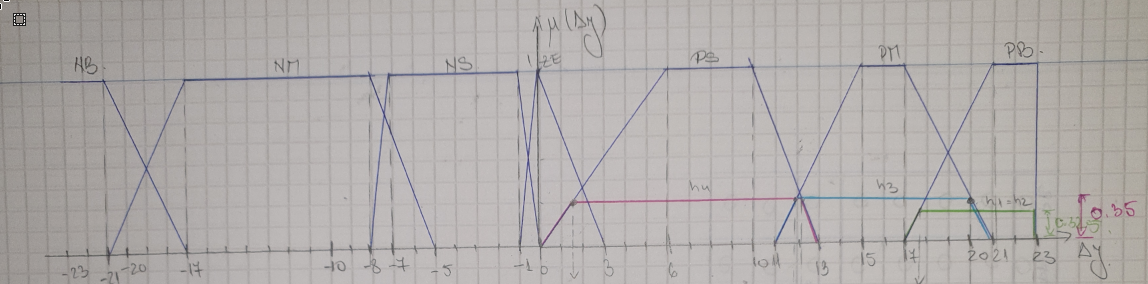 μ(Δy)
NB NM NS 1 ZE PS PM PB
h4 h3 h1=h2 0.35
-23 -21 -20 -17 -10 -8 -7 -5 -1 0 3 6 10 11 13 15 17 20 21 23 Δy